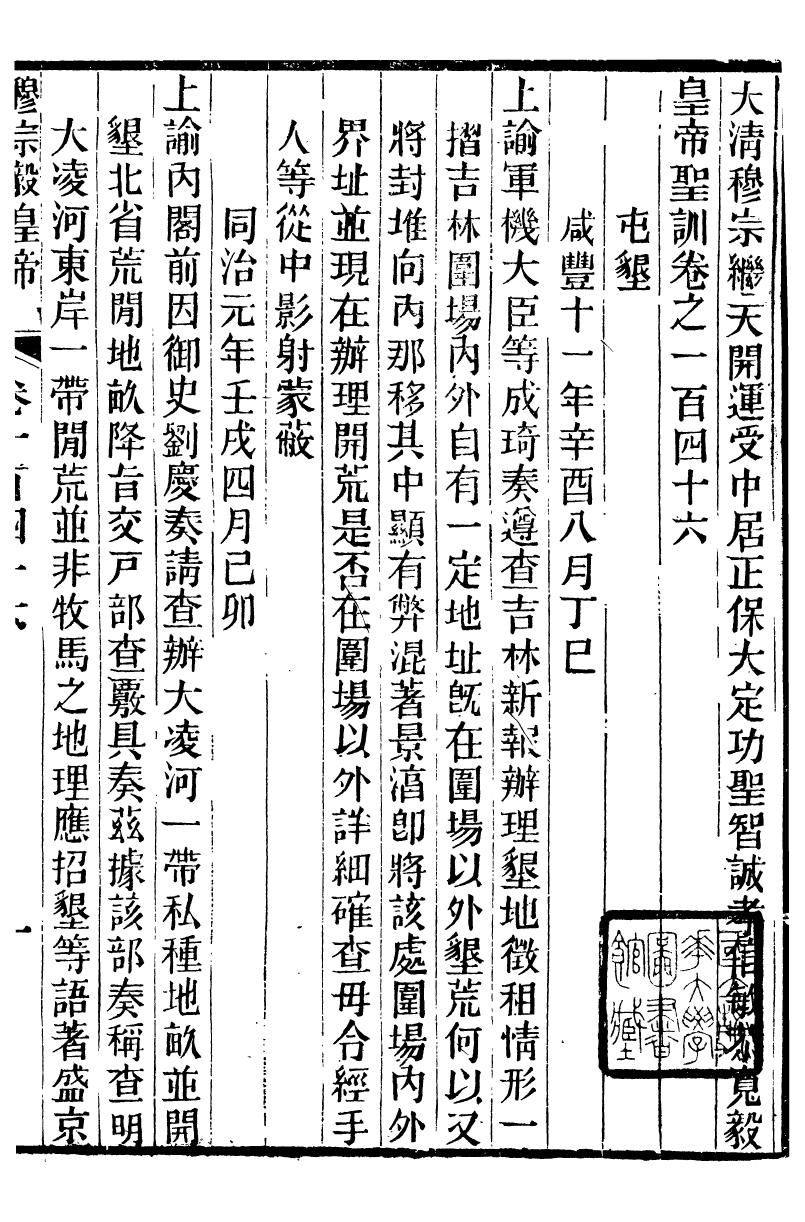 大清穆宗繼天開運受中居正保大定功聖智誠孝信敏恭寬毅
皇帝聖訓卷之一百四十六
屯墾
咸豐十一年辛酉八月丁巳
上諭軍機大臣等成琦奏遵查吉林新報辦理墾地徵租情形一
摺吉林圍場內外自有一定地址旣在圍場以外墾荒何以又
將封堆向內那移其中顯有弊混著景淳卽將該處圍場內外
界址並現在辦理開荒是否在圍場以外詳細確查毋令經手
人等從中影射蒙蔽
同治元年壬戌四月己卯
上諭內閣前因御史劉慶奏請查辦大凌河一帶私種地畝並開
墾北省荒閒地畝降旨交戸部查覈具奏茲據該部奏稱查明
大凌河東岸一帶閒荒並非牧馬之地理應招墾等語著盛京
穆宗毅皇帝 卷一百四十六 一
華大學
圖書
館藏